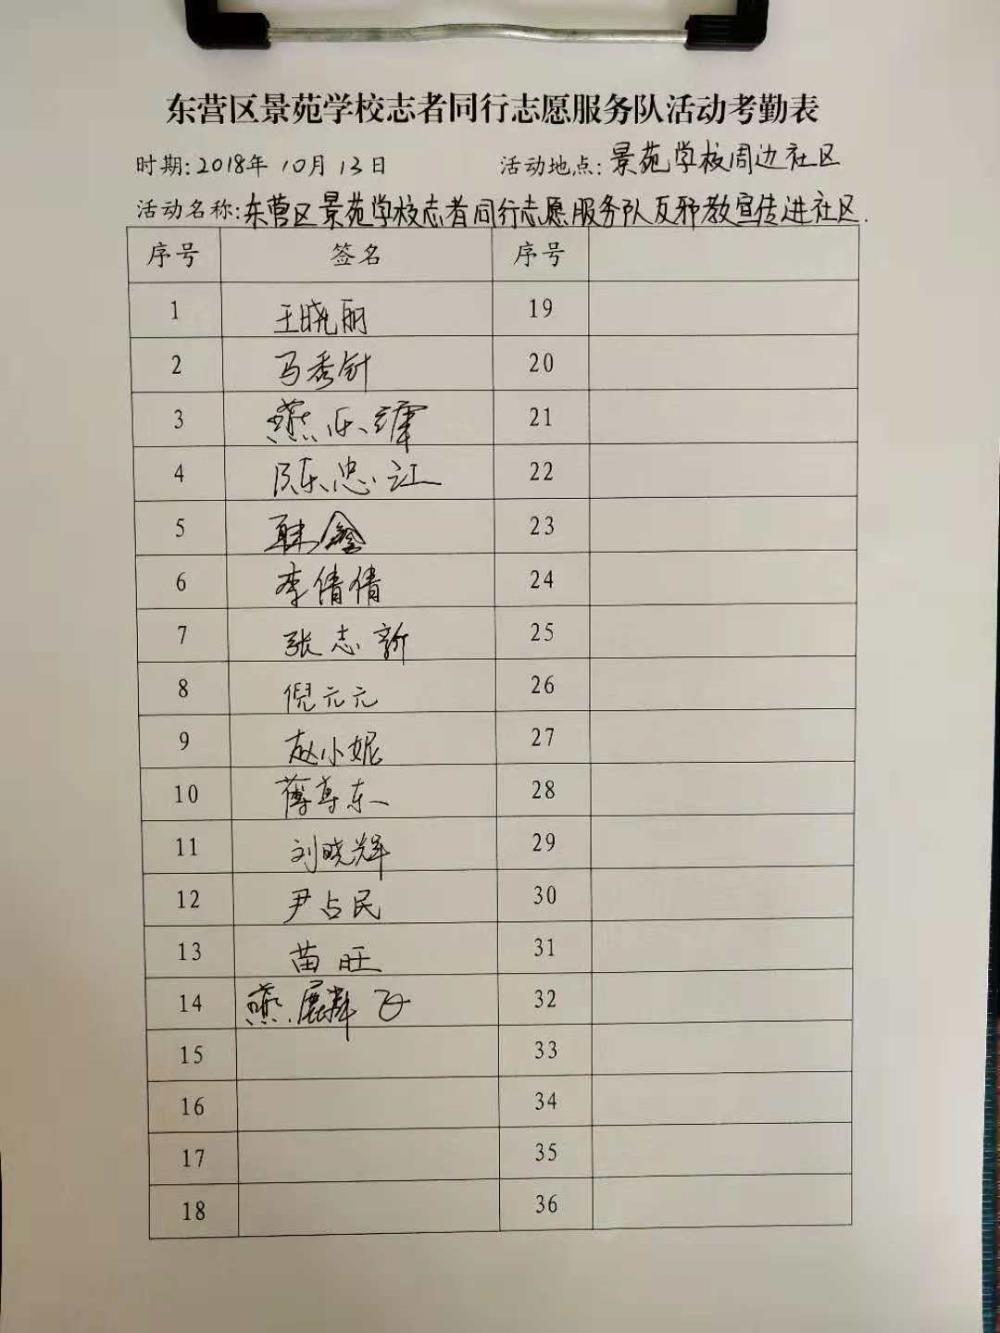 东营区景苑学校志者同行志愿服务队活动考勤表
时期:2018年10月13日 活动地点:景苑学校周边社区
活动名称:东营区景苑学校志者同行志愿服务队反邪教宣传进社区.
序号 签名 序号
1 王晓丽 19
2 马秀针 20
3 燕乐 21
4 陈忠江 22
5 23
6 李倩倩 24
7 张志新 25
8 倪元元 26
9 赵小妮 27
10 薄尊东 28
11 刘晓辉 29
12 尹占民 30
13 苗旺 31
14 燕 飞 32
15 33
16 34
17 35
18 36